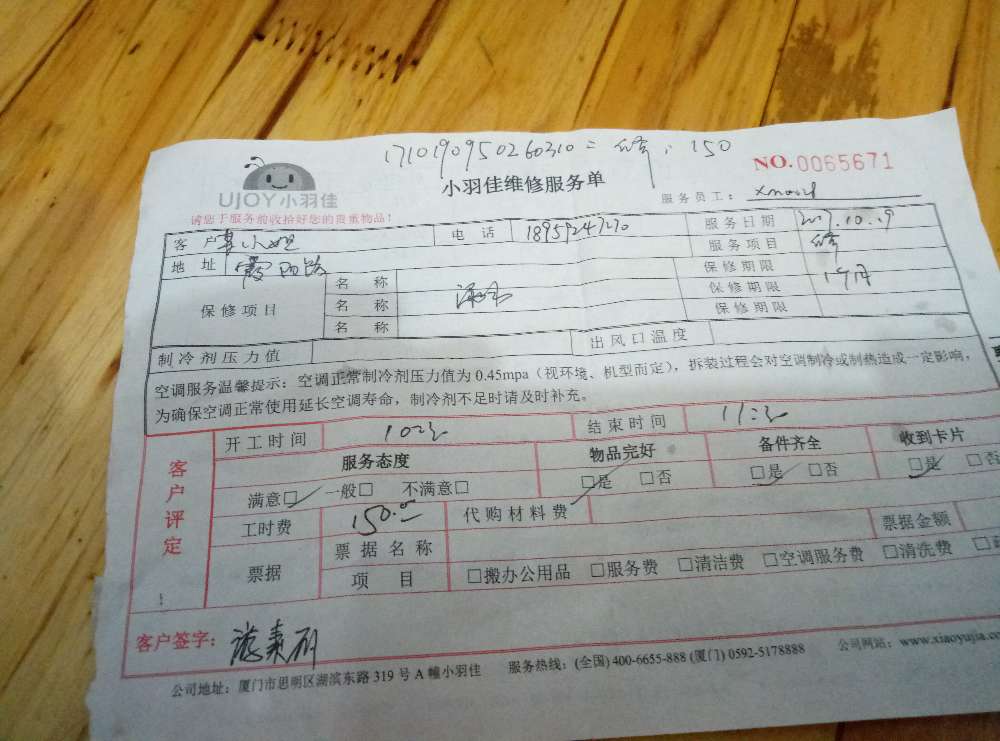 1710190950260310 = 修: 150
NO.0065671
UJOY小羽佳
小羽佳维修服务单
服务员工:
请您于服务前收拾好您的贵重物品!
客户 小姐 电话 服务日期 2017.10.19
地址 霞阳路 服务项目 修
保修项目 名称 漏水 保修期限 1个月
名称 保修期限
名称 保修期限
制冷剂压力值 出风口温度
空调服务温馨提示:空调正常制冷剂压力值为0.45mpa(视环境、机型而定),拆装过程会对空调制冷或制热造成一定影响,
为确保空调正常使用延长空调寿命,制冷剂不足时请及时补充。
客户评定
开工时间 结束时间
服务态度 物品完好 备件齐全 收到卡片
满意□ 一般□ 不满意□ □是 □否 □是 □否 □是 □否
工时费 150.00 代购材料费
票据 票据名称 票据金额
项目 □搬办公用品 □服务费 □清洁费 □空调服务费 □清洗费
客户签字:
公司地址:厦门市思明区湖滨东路319号A幢小羽佳 服务热线:(全国)400-6655-888(厦门)0592-5178888 公司网站:www.xiaoyujia.c